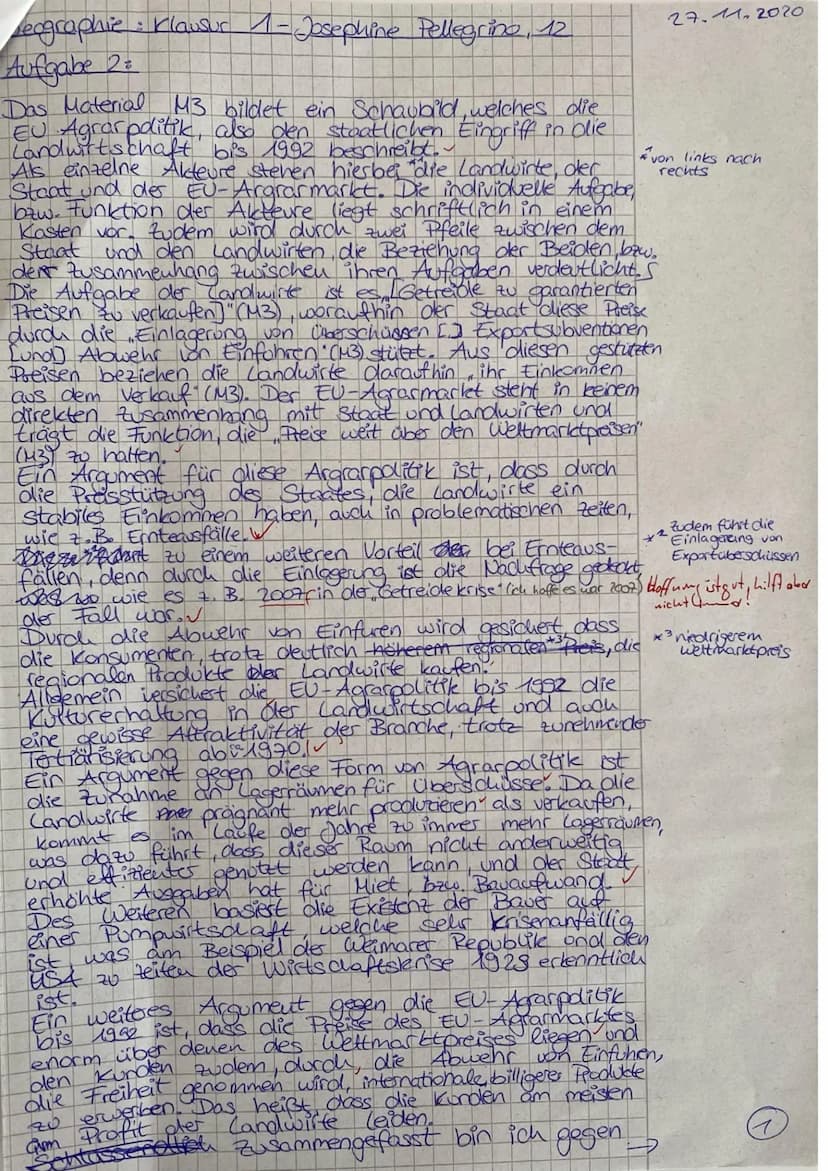 Geographie: Klausur 1 - Josephine Pellegrino, 12
27.11.2020
Aufgabe 2:
Das Material M3 bildet ein Schaubild, welches die
EU Agrarpolitik, also den staatlichen Eingriff in die
Landwirtschaft bis 1992 beschreibt.
Als einzelne Akteure stehen hierbei * die Landwirte, der
* von links nach
rechts
Staat und der EU-Argrarmarkt. Die individuelle Aufgabe,
bzw. Funktion der Akteure liegt schriftlich in einem
Kasten vor. Zudem wird durch zwei Pfeile zwischen dem
Staat und den Landwirten, die Beziehung der Beiden, bzw.
der Zusammenhang zwischen ihren Aufgaben verdeutlicht.
Die Aufgabe der Landwirte ist es „[Getreide zu garantierten
Preisen zu verkaufen]" (M3), woraufhin der Staat diese Preise
durch die „Einlagerung von Überschüssen [,] Exportsubventionen
[und] Abwehr von Einfuhren" (M3) stützt. Aus diesen gestützten
Preisen beziehen die Landwirte daraufhin „ihr Einkommen
aus dem Verkauf" (M3). Der EU-Agrarmarkt steht in keinem
direkten Zusammenhang mit Staat und Landwirten und
trägt die Funktion, die „Preise weit über den Weltmarktpreisen"
(M3) zu halten.
Ein Argument für diese Argrarpolitik ist, dass durch
die Preisstützung des Staates, die Landwirte ein
stabiles Einkommen haben, auch in problematischen Zeiten,
wie z.B. Ernteausfälle.
*² Zudem führt die
Einlagerung von
Exportüberschüssen
zu einem weiteren Vorteil bei Ernteaus-
fällen, denn durch die Einlagerung ist die Nachfrage gedeckt,
wie es z.B. 2007 in der „Getreidekrise" (ich hoffe es war 2007)
Hoffnung ist gut, hilft aber
nicht immer!
der Fall war.
Durch die Abwehr von Einfuren wird gesichert dass
die Konsumenten, trotz deutlich höherem regionalen *³ Preis, die
*³ niedrigerem
Weltmarktpreis
regionalen Produkte der Landwirte kaufen.
Allgemein versichert die EU-Agrarpolitik bis 1992 die
Kulturerhaltung in der Landwirtschaft und auch
eine gewisse Attraktivität der Branche, trotz zunehmender
Tertiärisierung ab ≈1970.
Ein Argument gegen diese Form von Agrarpolitik ist
die Zunahme an Lagerräumen für Überschüsse. Da die
Landwirte prägnant mehr produzieren als verkaufen,
kommt es im Laufe der Jahre zu immer mehr Lagerräumen,
was dazu führt, dass dieser Raum nicht anderweitig
und effizienter genutzt werden kann, und der Staat
erhöhte Ausgaben hat für Miet, bzw. Bauaufwand.
Des Weiteren basiert die Existenz der Bauer auf
einer Pumpwirtschaft, welche sehr krisenanfällig
ist, was am Beispiel der Weimarer Republik und den
USA zu Zeiten der Wirtschaftskrise 1929 erkenntlich
ist.
Ein weiteres Argument gegen die EU-Agrarpolitik
bis 1992 ist, dass die Preise des EU-Agrarmarktes
enorm über denen des Weltmarktpreises liegen und
den Kunden zudem, durch, die Abwehr von Einfuhen,
die Freiheit genommen wird, internationale, billigere Produkte
zu erwerben. Das heißt dass die Kunden am meisten
am Profit der Landwirte leiden.
Schlussendlich Zusammengefasst bin ich gegen →
1